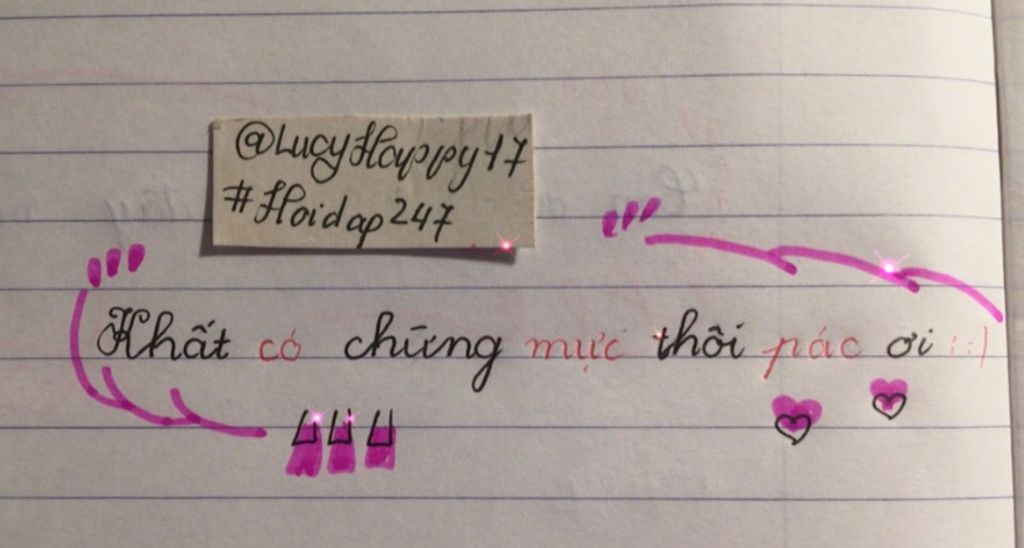 @LucyHappy17
#Hoidap247
Khất có chừng mực thôi pác ơi :))